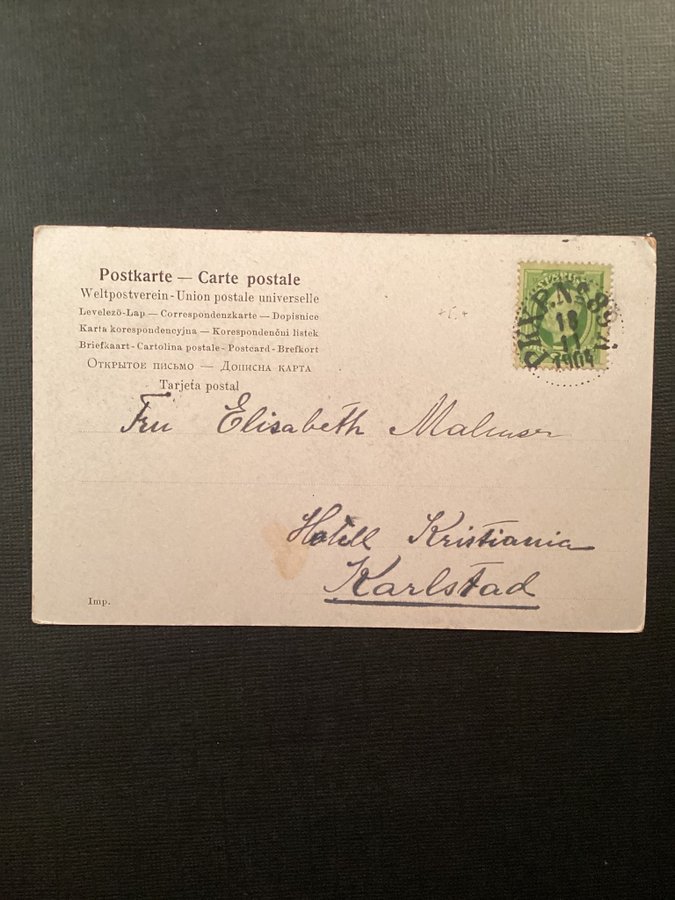 Postkarte — Carte postale
Weltpostverein - Union postale universelle
Levelező-Lap — Correspondenzkarte — Dopisnice
Karta korespondencyjna — Korespondenční listek
Briefkaart - Cartolina postale - Postcard - Brefkort
Открытое письмо — Дописна карта
Tarjeta postal
PKXP.Nº
18
11
1904
Fru Elisabeth
Hotell Kristiania
Karlstad
Imp.